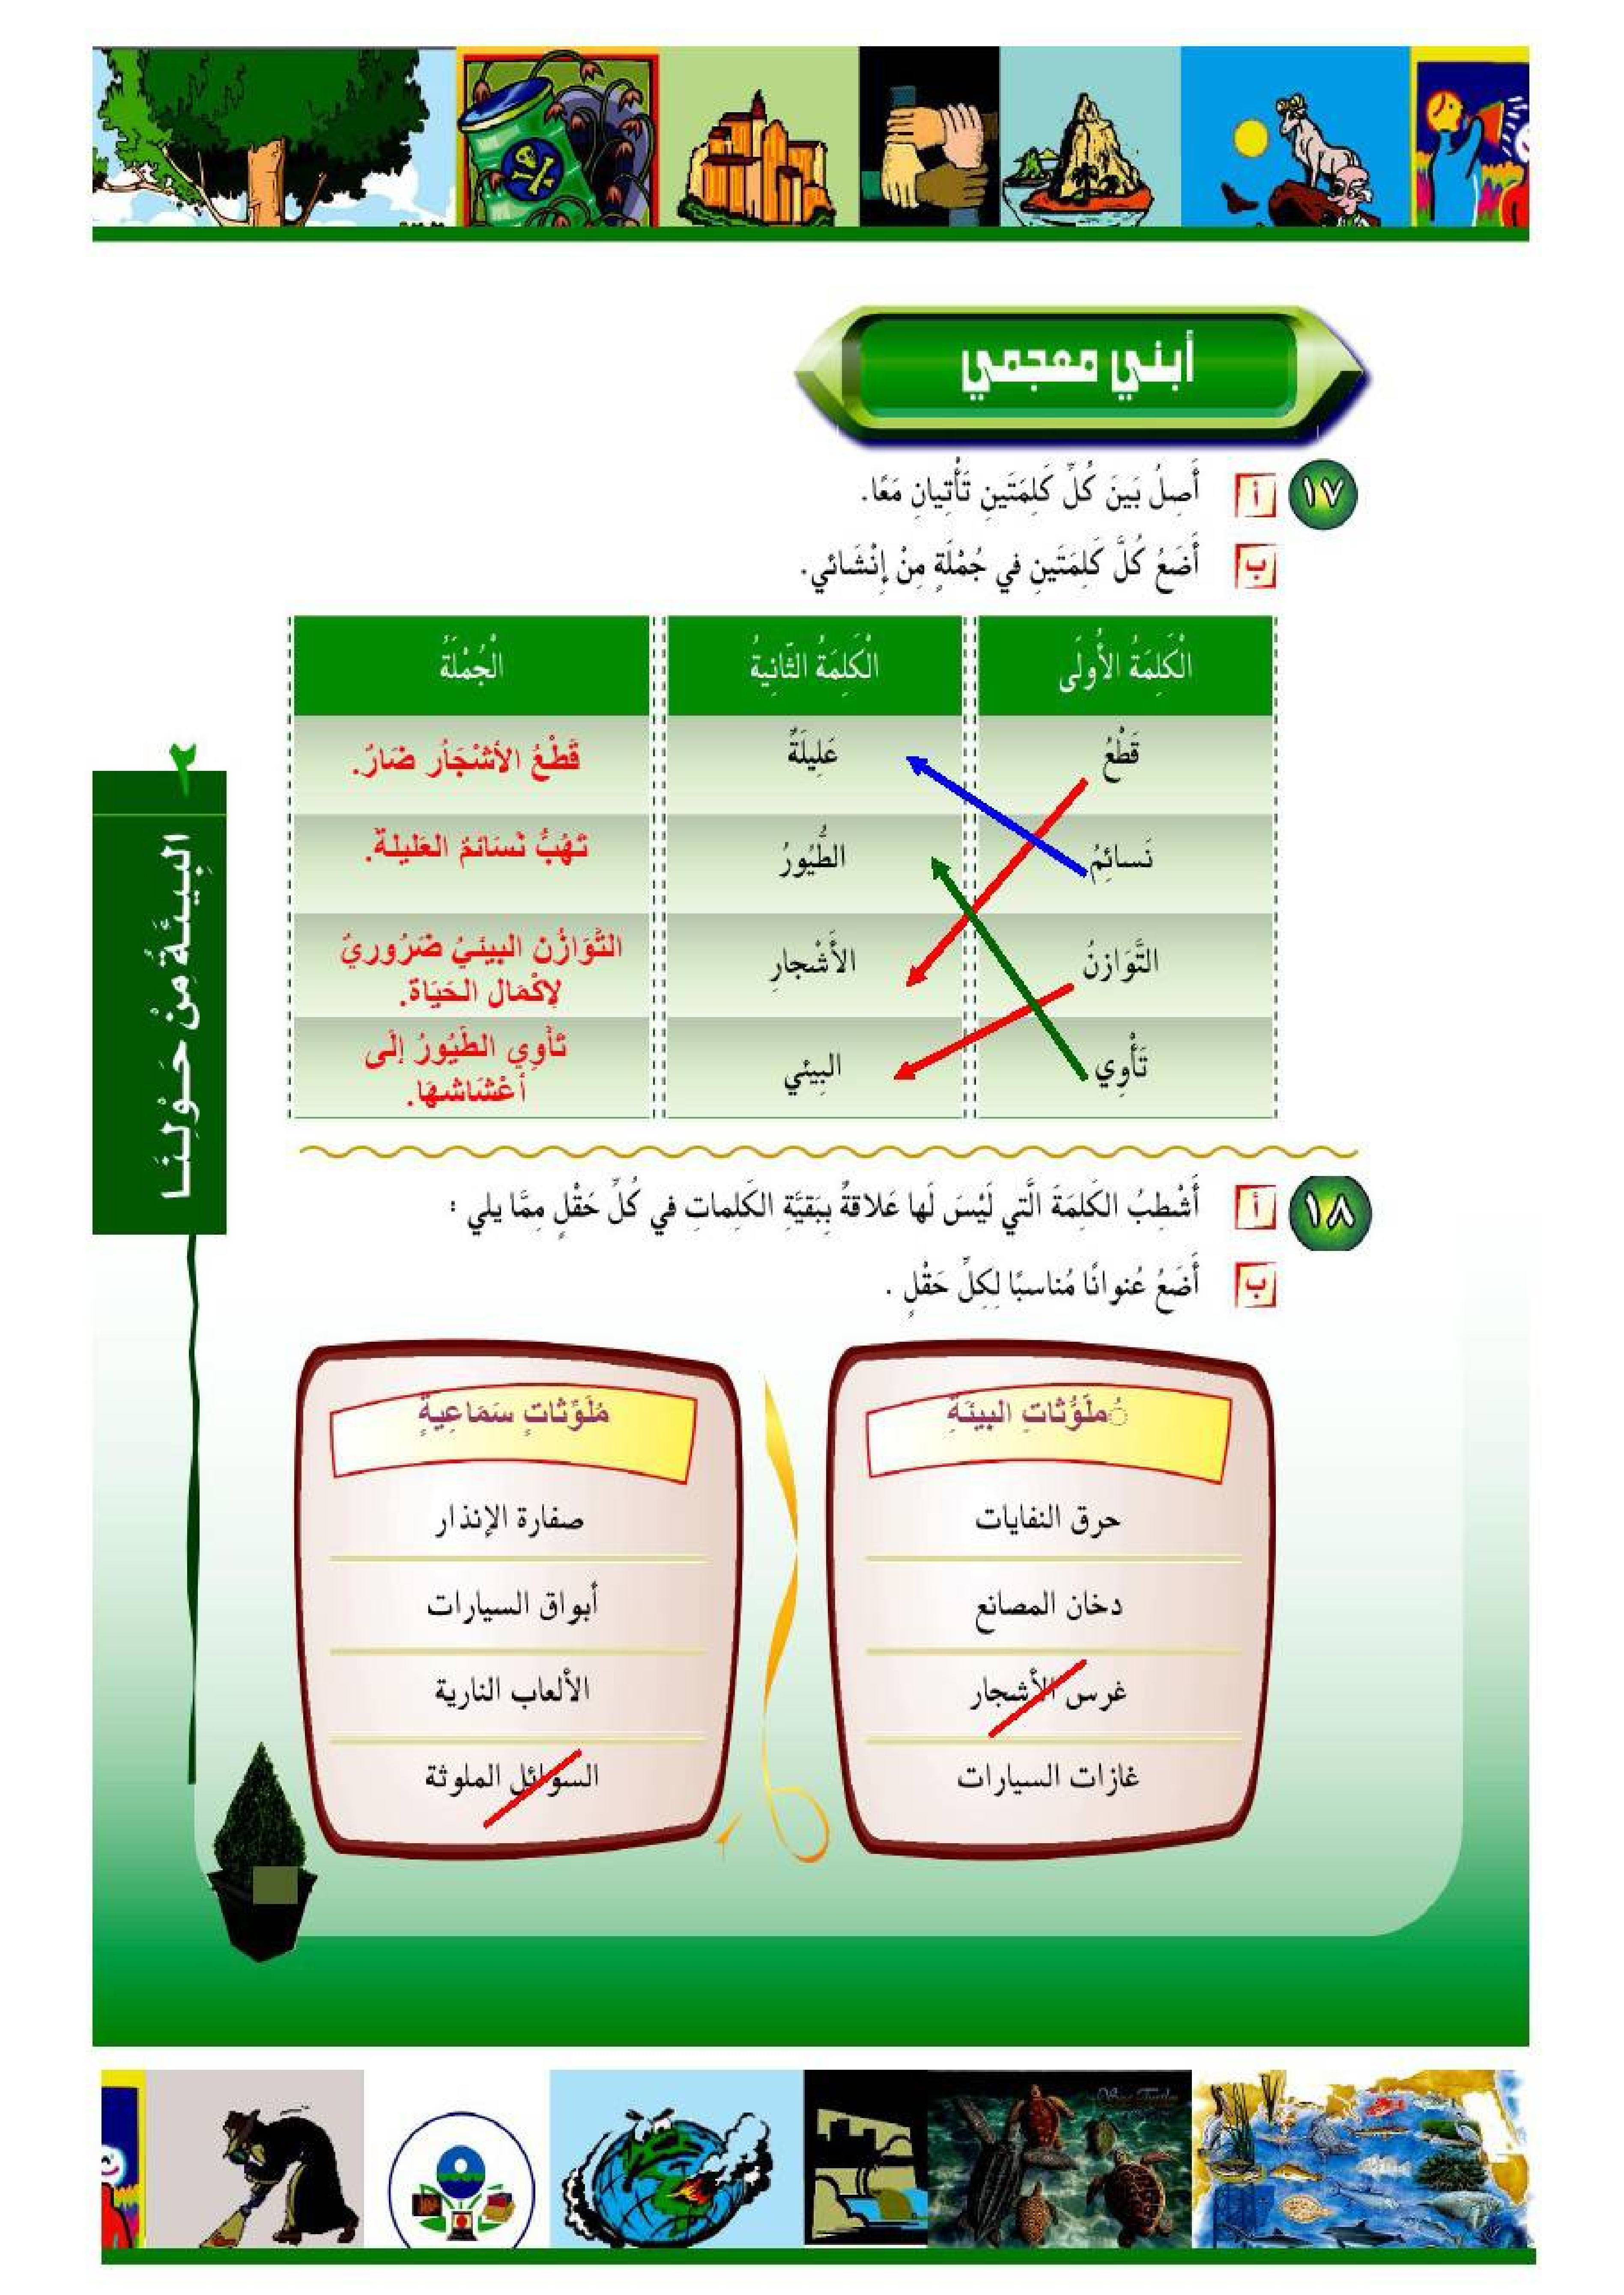 أبني معجمي
١٧ أ أَصِلُ بَينَ كُلِّ كَلِمَتَينِ تَأْتِيانِ مَعًا.
ب أَضَعُ كُلَّ كَلِمَتَينِ في جُمْلَةٍ مِنْ إِنْشَائي.
الْكَلِمَةُ الأُولَى الْكَلِمَةُ الثَّانِيةُ الْجُمْلَةُ
قَطْعُ عَلِيلَةٌ قَطْعُ الأَشْجَارُ ضَارٌ.
نَسائِمُ الطُّيُورُ تَهُبُّ نَسَائمُ العَليلةُ.
التَّوَازنُ الأَشْجارِ التَّوَازُنُ البيئيُ ضَرُوريٌ
لإِكْمَال الحَيَاة.
تَأْوِي البِيئي تَأْوِي الطُيُورُ إلَى
أعْشَاشهَا.
١٨ أ أَشْطِبُ الكَلِمَةَ الَّتي لَيْسَ لَها عَلاقةٌ بِبَقيَّةِ الكَلِماتِ في كُلِّ حَقْلٍ مِمَّا يلي :
ب أَضَعُ عُنوانًا مُناسبًا لِكِلِّ حَقْلٍ .
ُملَوُثاتِ البيئَةِ
حرق النفايات
دخان المصانع
غرس الأشجار
غازات السيارات
مُلَوِّثَاتٍ سَمَاعِيةٍ
صفارة الإنذار
أبواق السيارات
الألعاب النارية
السوائل الملوثة
٢
البِيئَةُ مِنْ حَوْلِنَا
Sea Turtles